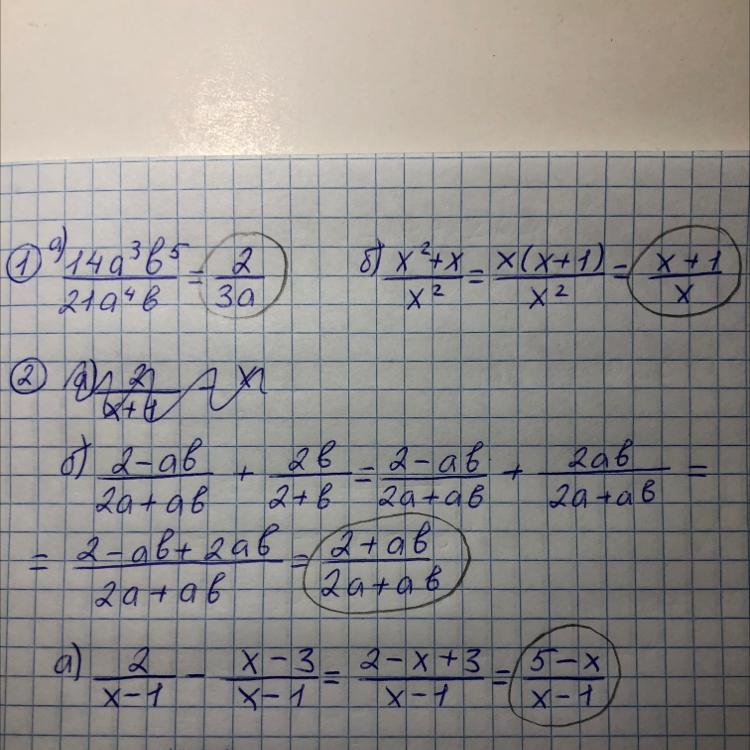 ① а) 14a³b⁵/21a⁴b = 2/3a б) x²+x/x² = x(x+1)/x² = x+1/x
② а) 2/x+4 - x
б) 2-ab/2a+ab + 2b/2+b = 2-ab/2a+ab + 2ab/2a+ab =
= 2-ab+2ab/2a+ab = 2+ab/2a+ab
а) 2/x-1 - x-3/x-1 = 2-x+3/x-1 = 5-x/x-1